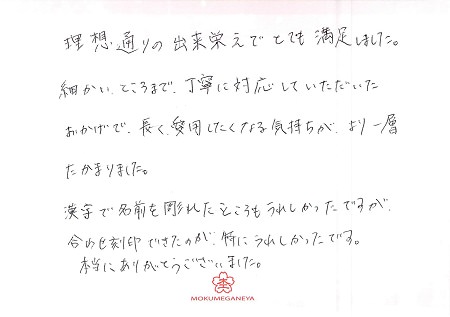 理想通りの出来栄えでとても満足しました。
細かいところまで、丁寧に対応していただいた
おかげで、長く愛用したくなる気持ちが、より一層
たかまりました。
漢字で名前を彫れたところもうれしかったですが、
刻印できたのが、特にうれしかったです。
本当にありがとうございました。
MOKUMEGANEYA